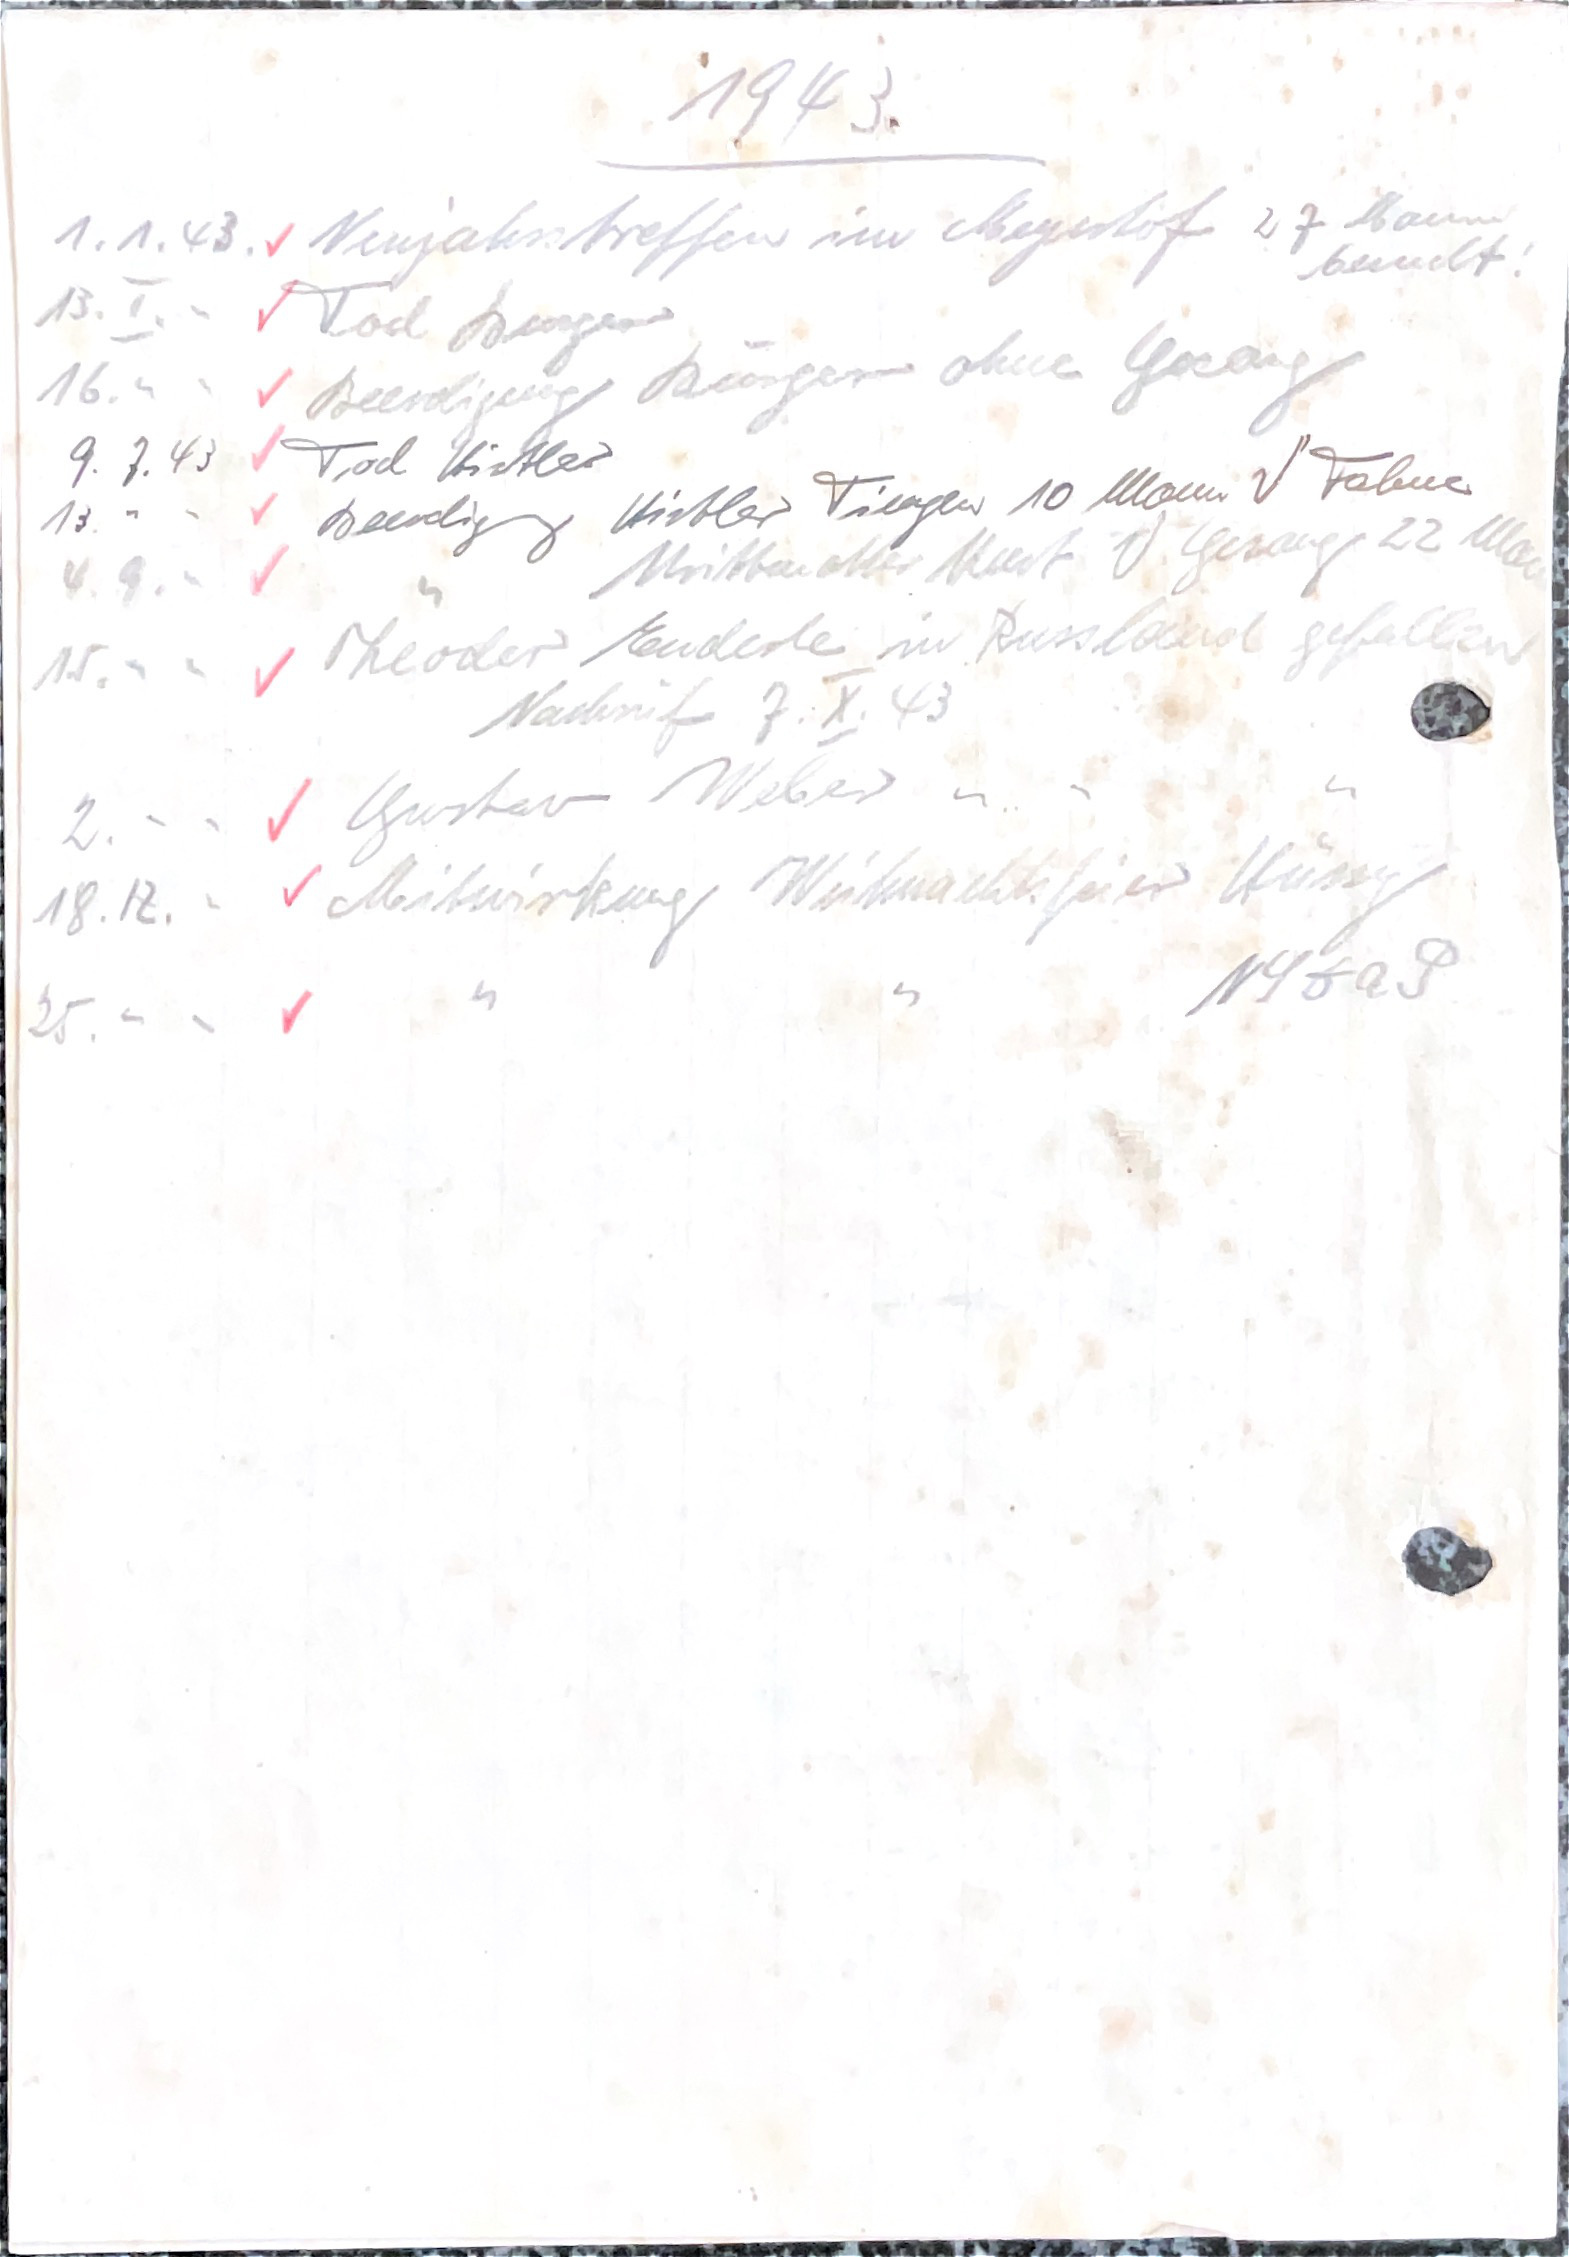 1943.
1. 1. 43. ✓ Neujahrstreffen im Meyerhof 27 Mann
besucht!
13. I. " ✓ Tod Burger
16. " " ✓ Beerdigung Burger ohne Gesang
9. 7. 43 ✓ Tod Kistler
13. " " ✓ Beerdigg Kistler Tiengen 10 Mann Fahne
4. 9. " ✓ " Gesang 22 Mann
15. " " ✓ Theodor Enderle in Russland gefallen
Nachruf 7. X. 43
2. " " ✓ Gustav Weber " " "
18. 12. " ✓ Mitwirkung Weihnachtsfeier Hüssy
25. " " ✓ " " NSDAP